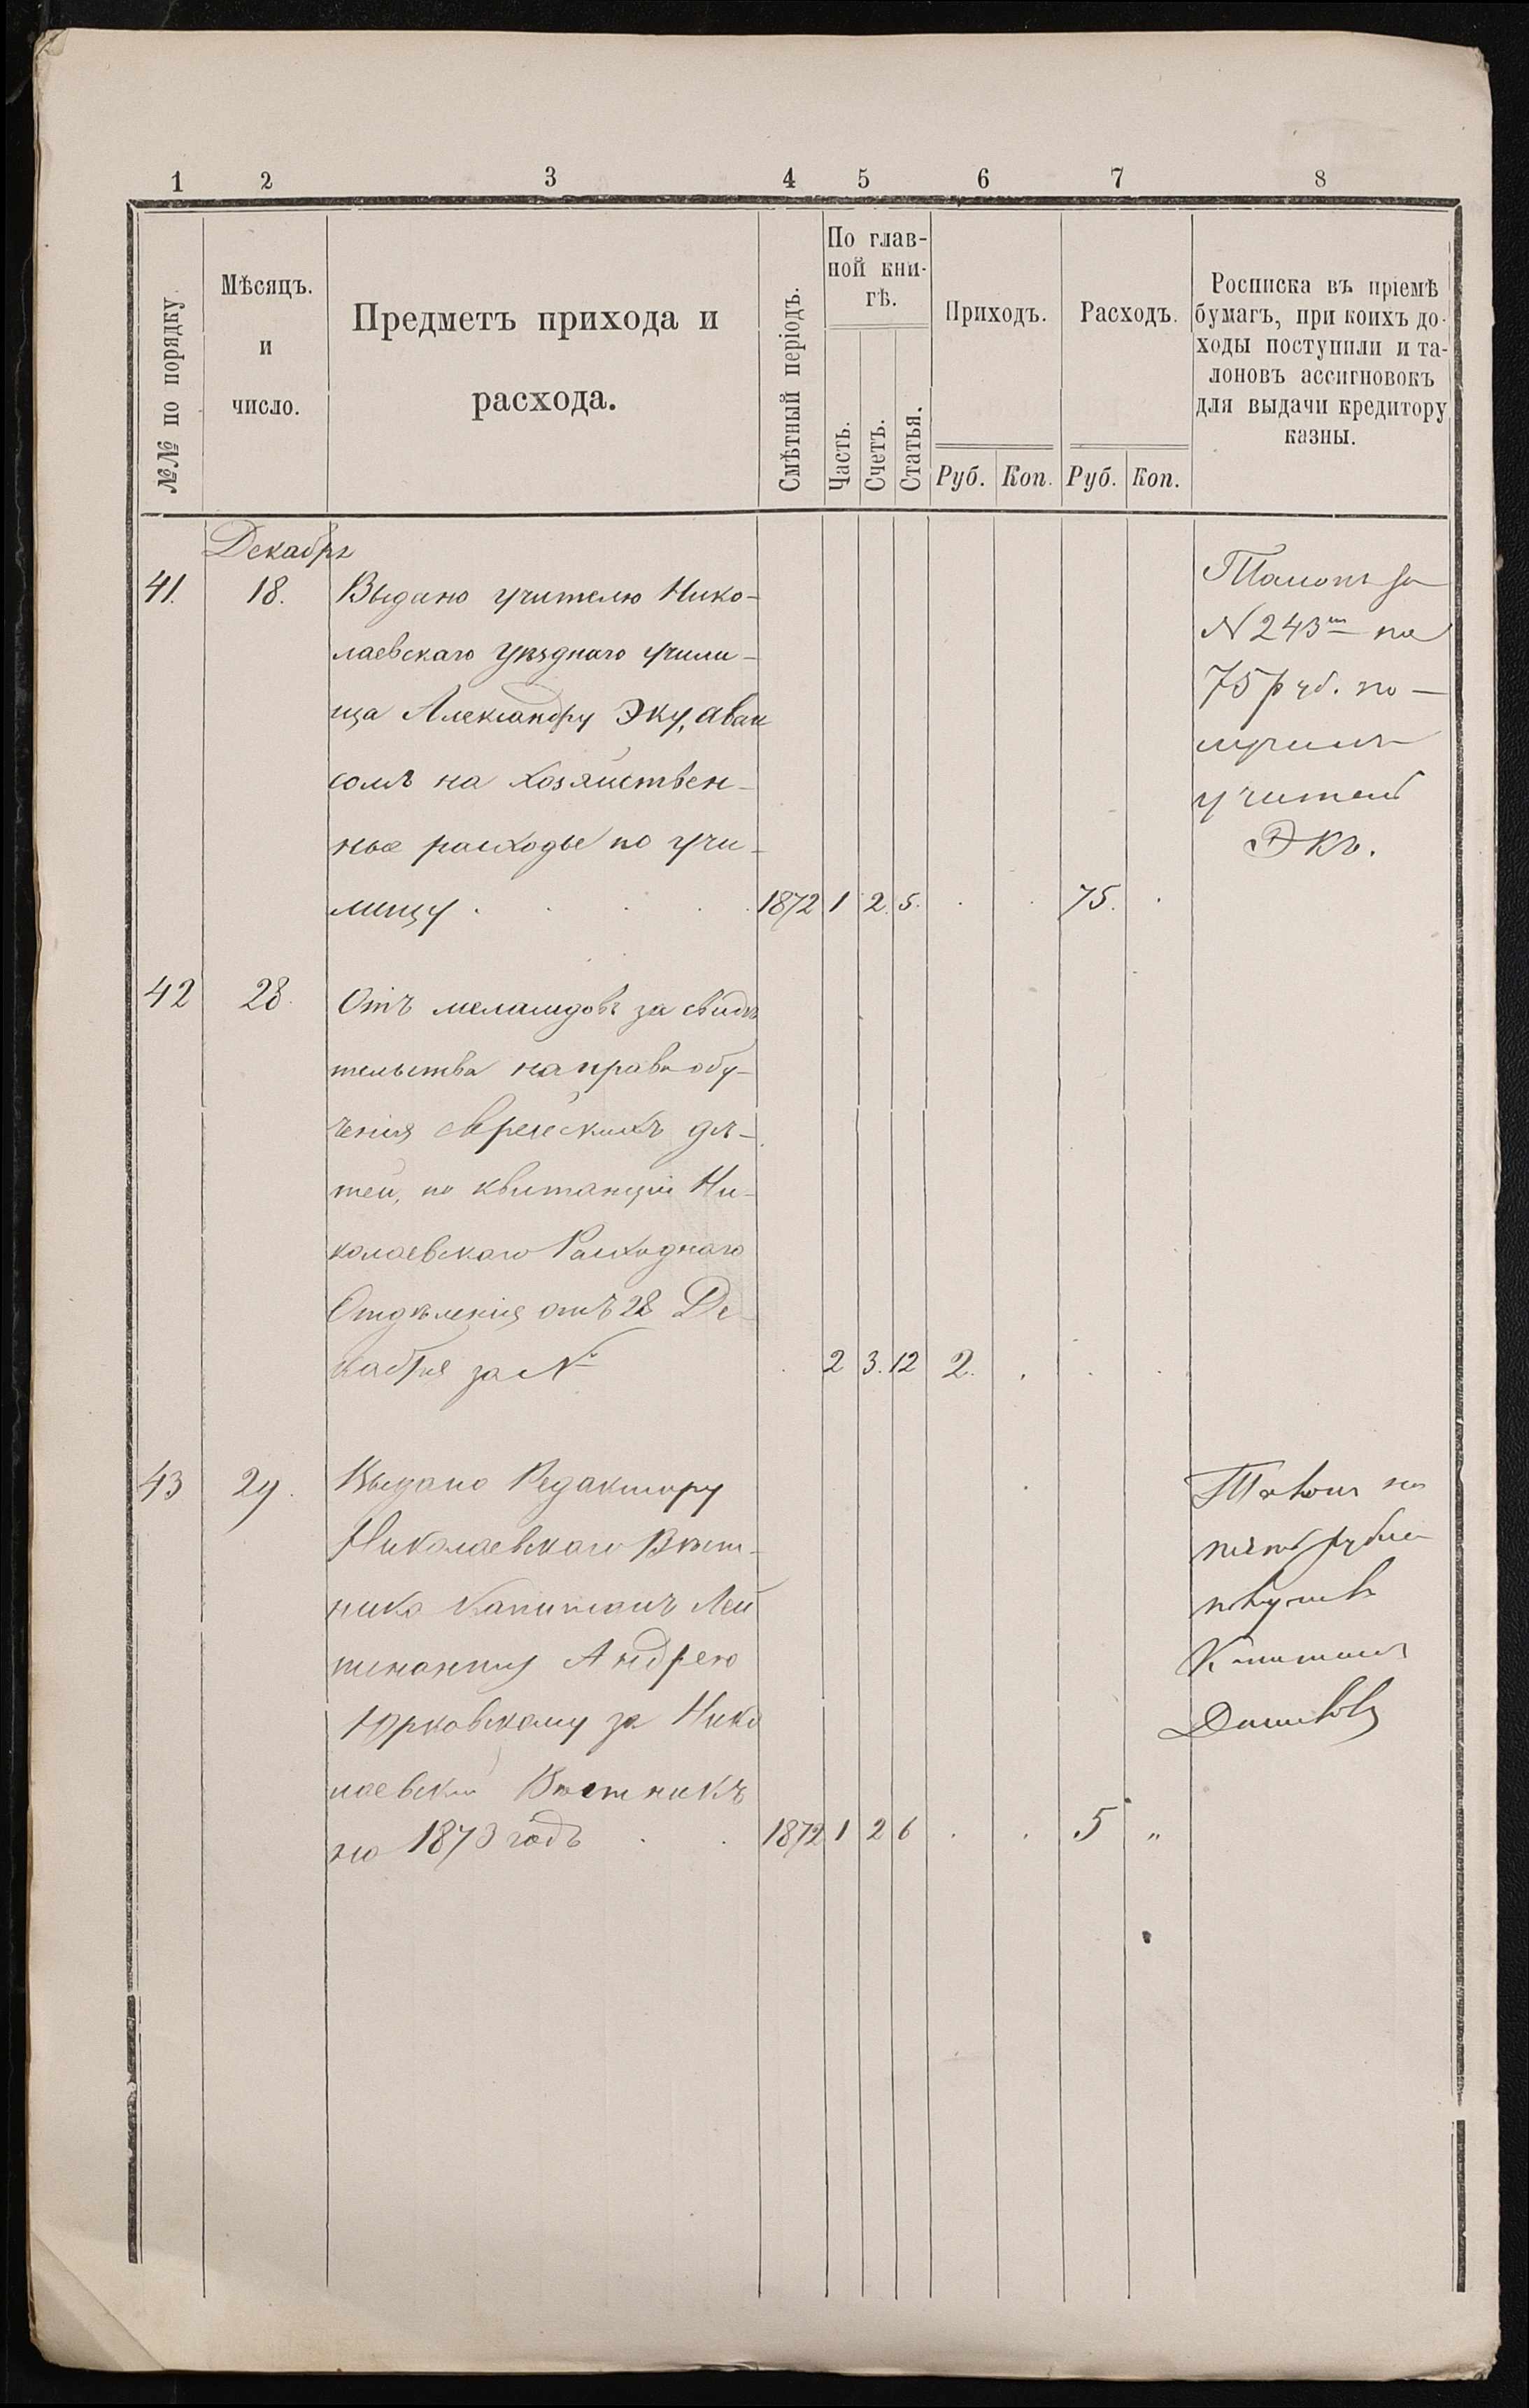 1 2 3 4 5 6 7 8
№№ по порядку
Мѣсяцъ.
и
число.
Предметъ прихода и
расхода.
Смѣтный періодъ.
По глав-
ной кни-
гѣ.
Часть.
Счетъ.
Статья.
Приходъ.
Руб. Коп.
Расходъ.
Руб. Коп.
Росписка въ пріемѣ
бумагъ, при коихъ до-
ходы поступили и та-
лоновъ ассигновокъ
для выдачи кредитору
казны.
Декабрь
41. 18. Выдано учителю Нико-
лаевскаго Уѣзднаго учили-
ща Александру Эку, аван
сомъ на хозяйствен-
ные расходы по учи-
лищу . . . . . 1872 1 2. 5. . . 75. .
Талонъ за
N 243 на
75 руб. по-
лучилъ
учитель
Экъ.
42 28. Отъ меламдовъ за свидѣ
тельства на право обу-
ченія еврейскихъ дѣ-
тей, по квитанціи Ни-
колаевскаго Расходнаго
Отдѣленія отъ 28 Де
кабря за № . 2 3. 12 2. . . .
43 29. Выдано Редактору
Николаевскаго Вѣст-
ника Капитанъ Лей
тенанту Андрею
Юрковскому за Нико
лаевскій Вѣстникъ
на 1873 годъ . . 1872 1 2 6 . . 5 „
Талонъ на
пять рубле
получилъ
Капитанъ